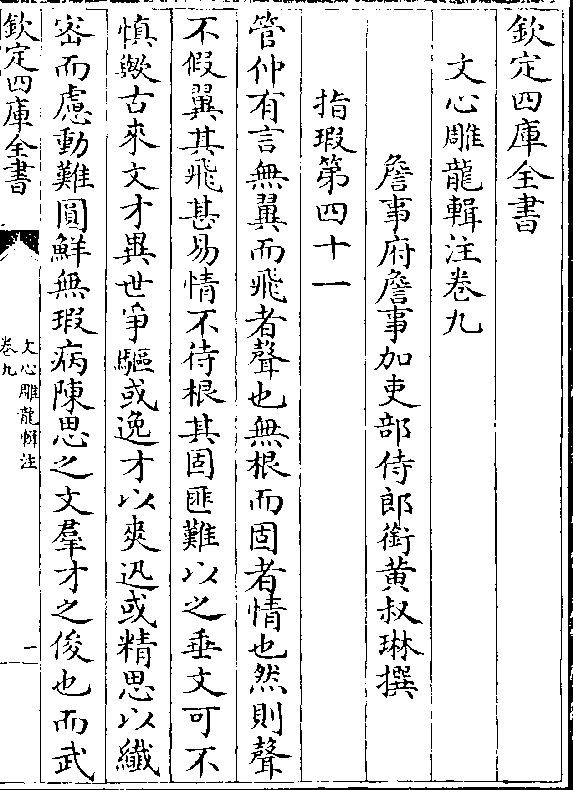 欽定四庫全書
文心雕龍輯注卷九
詹事府詹事加吏部侍郎銜黃叔琳撰
指瑕第四十一
管仲有言無翼而飛者聲也無根而固者情也然則聲
不假翼其飛甚易情不待根其固匪難以之垂文可不
慎歟古來文才異世爭驅或逸才以爽迅或精思以纖
密而慮動難圓鮮無瑕病陳思之文羣才之俊也而武
欽定四庫全書
文心雕龍輯注
卷九
一